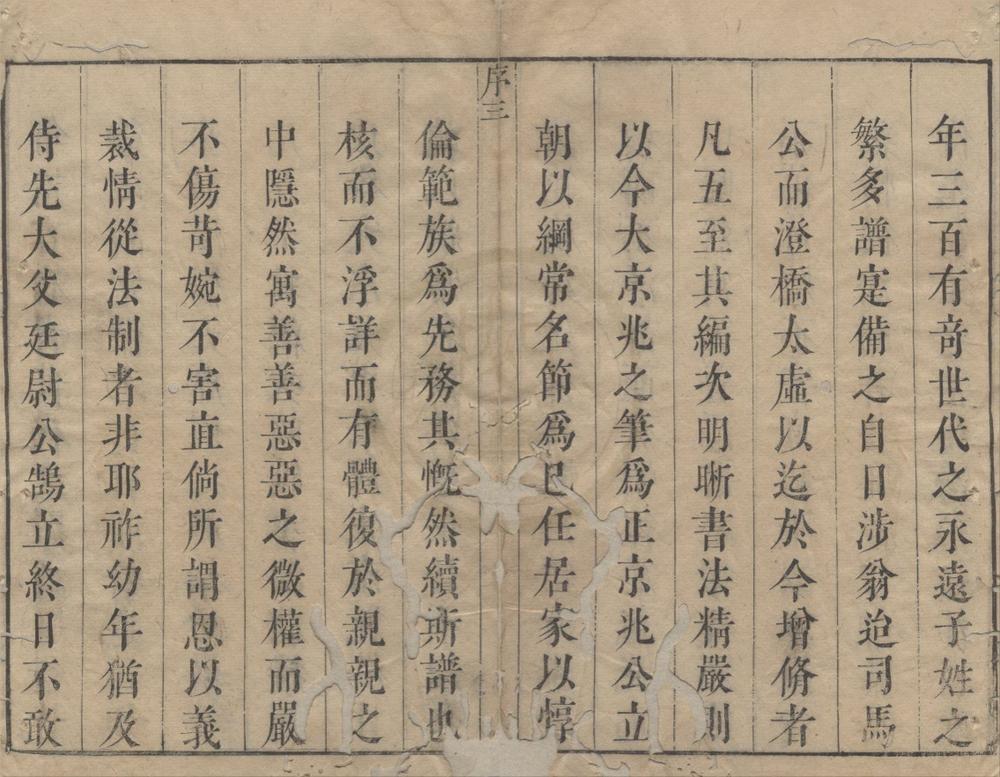 年三百有竒世代之永遠子姓之
繁多譜寔備之自日涉翁迨司馬
公而澄橋太虛以迄於今增脩者
凡五至其編次明晣書法精嚴則
以今大京兆之筆爲正京兆公立
朝以綱常名節爲己任居家以惇
序三
倫範族爲先務其慨然續斯譜也
核而不浮詳而有體復於親親之
中隱然寓善善惡惡之微權而嚴
不傷苛婉不害直倘所謂恩以義
裁情從法制者非耶祚幼年猶及
侍先大父廷尉公鵠立終日不敢